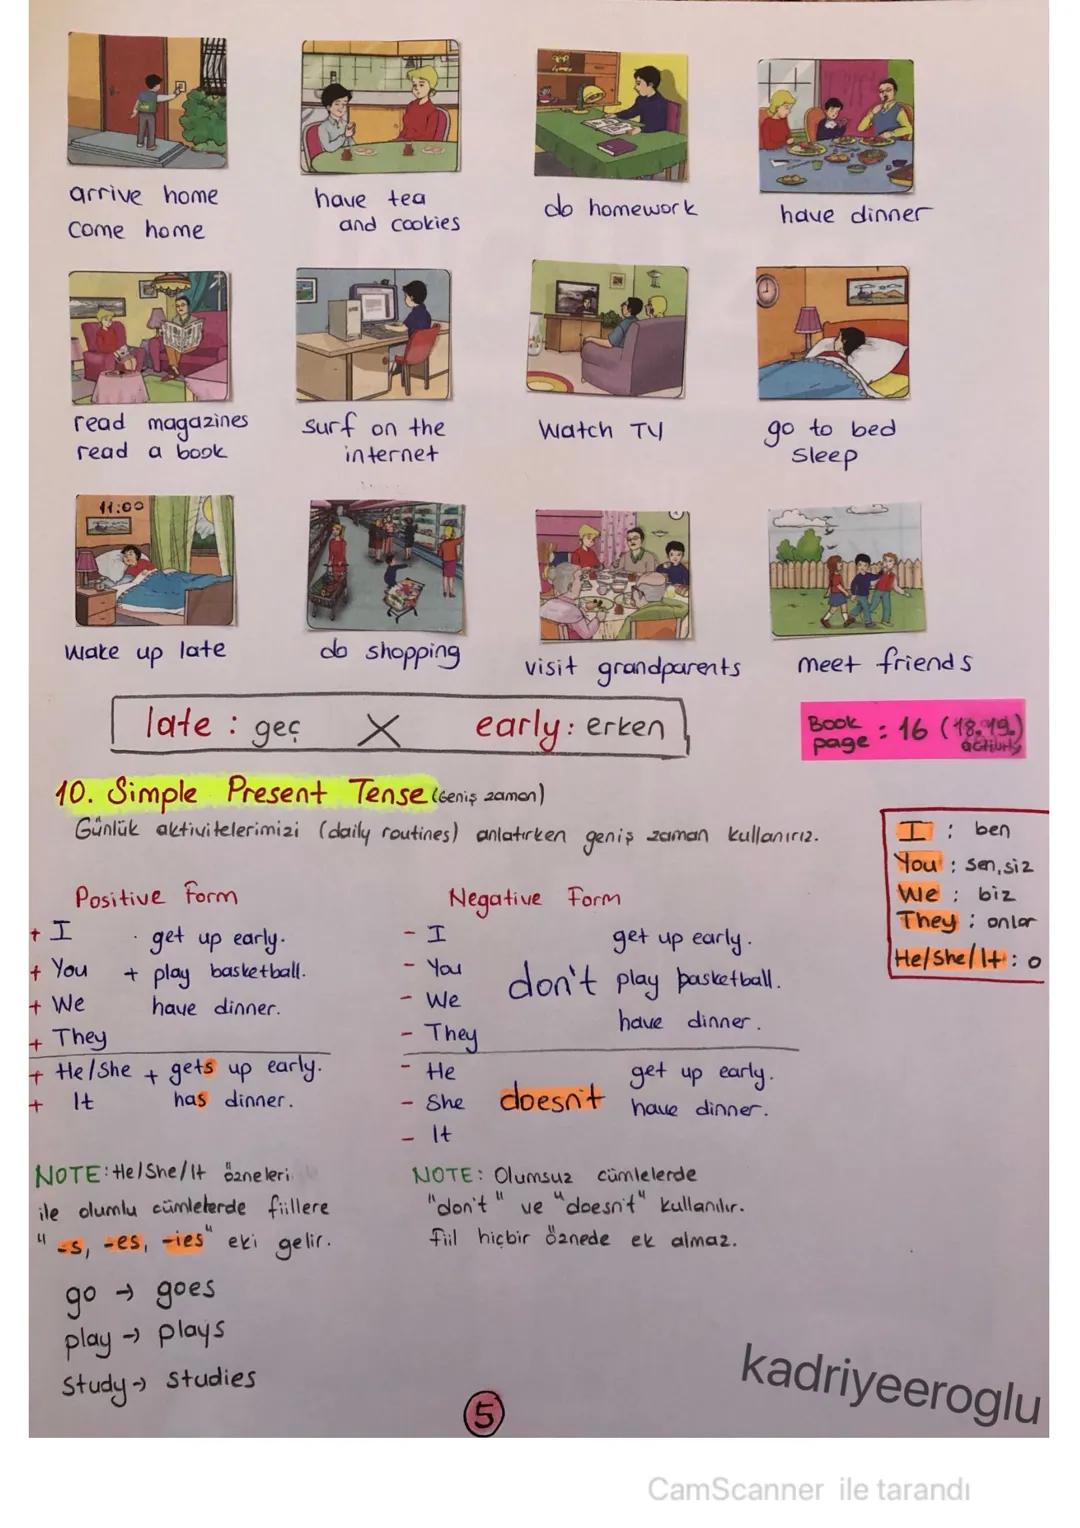 arrive home
come home
have tea
and cookies
do homework
have dinner
read magazines
read a book
surf on the
internet
watch TV
go to bed
sleep
11:00
wake up late
do shopping
visit grandparents
meet friends
late : geç X early : erken
Book page : 16 (18.19.) activity
10. Simple Present Tense (Geniş zaman)
Günlük aktivitelerimizi (daily routines) anlatırken geniş zaman kullanırız.
I : ben
You : sen, siz
We : biz
They : onlar
He/She/It : o
Positive Form
+ I get up early.
+ You + play basketball.
+ We have dinner.
+ They
+ He/She + gets up early.
+ It has dinner.
Negative Form
- I get up early.
- You don't play basketball.
- We have dinner.
- They
- He get up early.
- She doesn't have dinner.
- It
NOTE: He/She/It özneleri
ile olumlu cümlelerde fiillere
"-s, -es, -ies" eki gelir.
go → goes
play → plays
study → studies
NOTE: Olumsuz cümlelerde
"don't" ve "doesn't" kullanılır.
Fiil hiçbir öznede ek almaz.
5
kadriyeeroglu
CamScanner ile tarandı